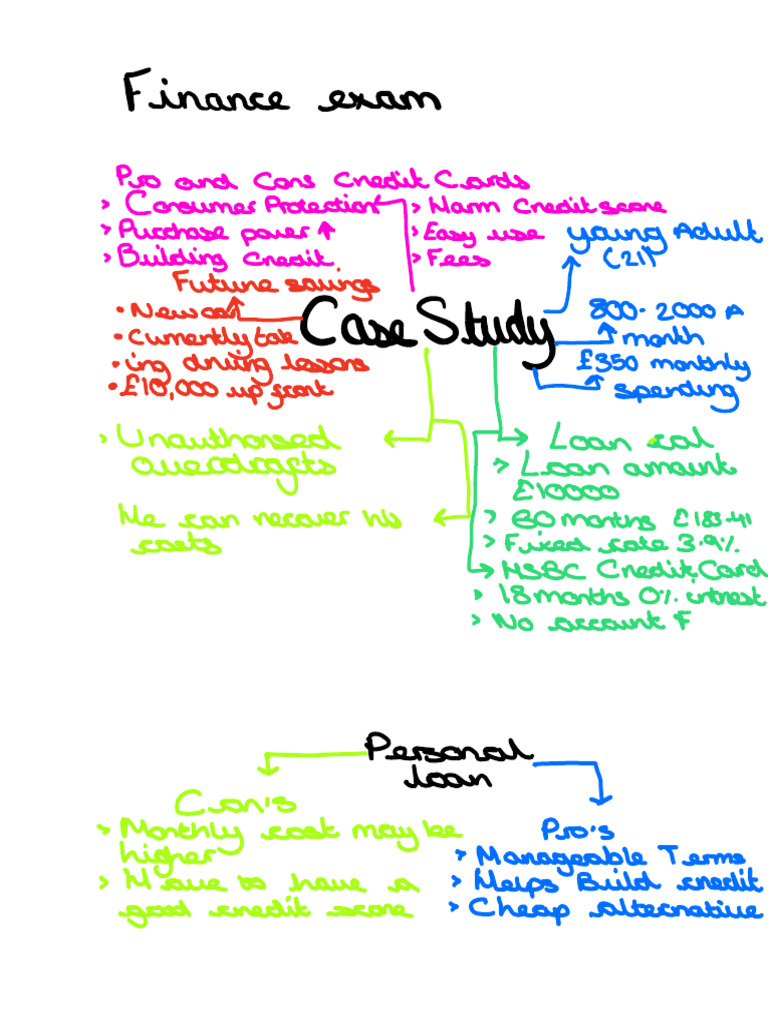 Finance exam
Pro and Cons Credit Cards
> Consumer Protection
> Purchase power ↑
> Building Credit.
> Harm Credit score
> Easy use
> Fees
young Adult
(21)
Future savings
• New car
• Currently tak
• ing driving lessons
• £10,000 up front
Case Study
800 - 2000 A
month
£350 monthly
spending
> Unauthorised
overdrafts
He can recover his
costs
Loan cal
> Loan amount
£10000
> 60 months £183.41
> Fixed rate 3.9%
HSBC Credit Card
> 18 months 0% intrest
> No account F
Personal
loan
Con's
> Monthly cost may be
higher
> Have to have a
good credit score
Pro's
> Manageable Terms
> Helps Build credit
> Cheap alternative